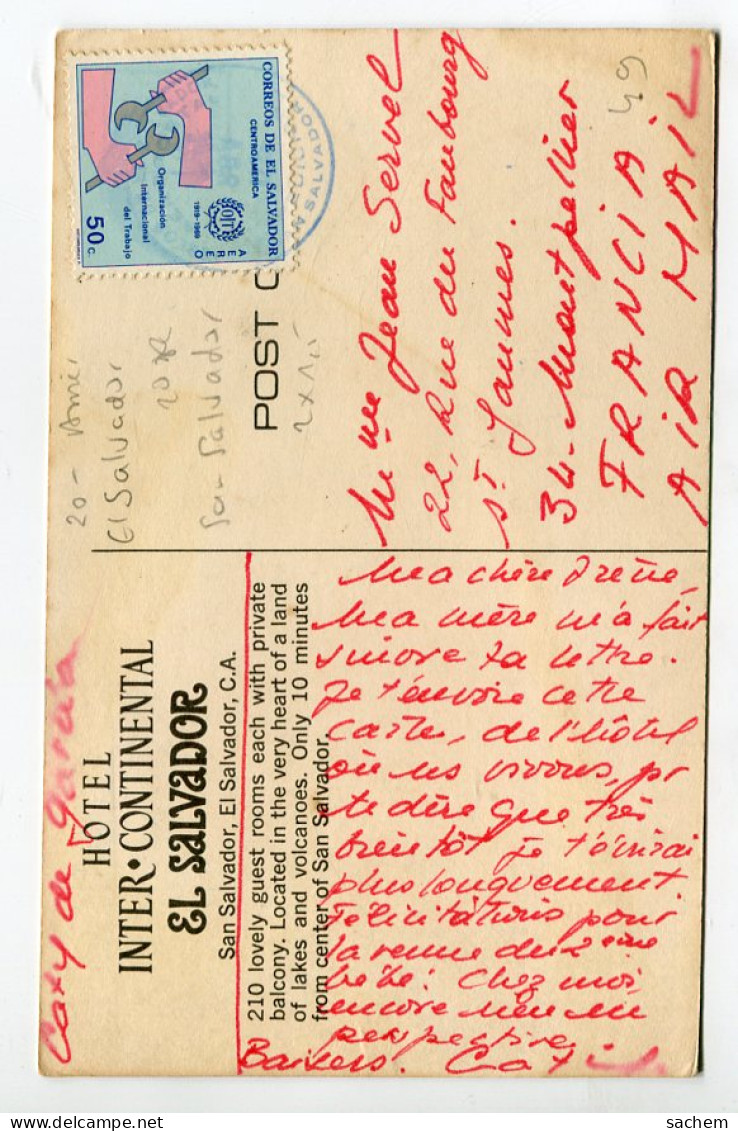 CORREOS DE EL SALVADOR
CENTROAMERICA
1919-1969
OIT
AEREO
Organización
Internacional
del Trabajo
50 c.
SALVADOR
POST C
2 x 1,-
20 -
El Salvador
20
San Salvador
49
Mme Jean Servel
22, Rue du Faubourg
St Jaumes.
34 - Montpellier
FRANCIA
AIR MAIL
Caty de Garcia
HOTEL
INTER·CONTINENTAL
EL SALVADOR
San Salvador, El Salvador, C.A.
210 lovely guest rooms each with private
balcony. Located in the very heart of a land
of lakes and volcanoes. Only 10 minutes
from center of San Salvador.
Ma chère Irène,
Ma mère m'a fait
suivre ta lettre.
Je t'envoie cette
carte, de l'hôtel
où ns vivons, pr
te dire que très
bientôt je t'écrirai
plus longuement.
Félicitations pour
la venue du 2ème
bébé! Chez moi,
encore rien en
perspective
Baisers. Caty
sachem